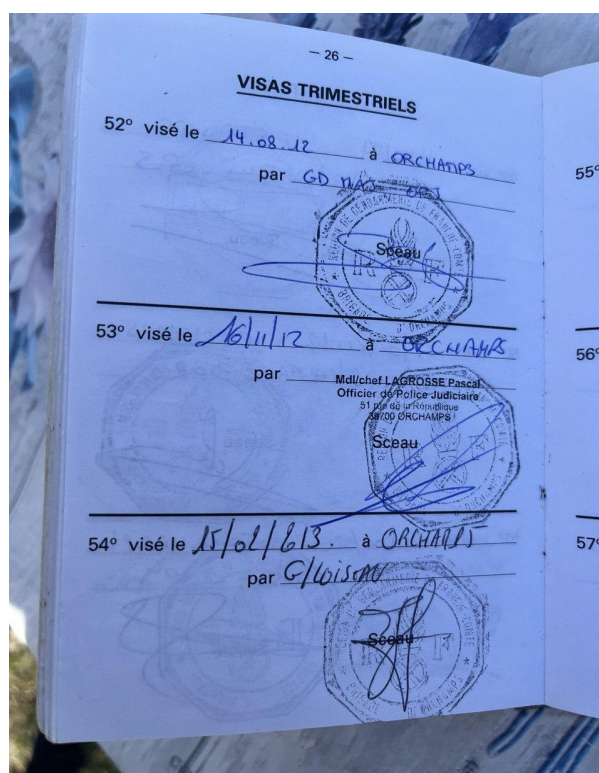 — 26 —
VISAS TRIMESTRIELS
52° visé le 14.08.12 à ORCHAMPS
par GD MAJ OPJ
RÉGION DE GENDARMERIE DE FRANCHE COMTÉ
D'ORCHAMPS
Sceau
R F
53° visé le 16/11/12 à ORCHAMPS
par Mdl/chef LAGROSSE Pascal
Officier de Police Judiciaire
51 rue de la République
39700 ORCHAMPS
Sceau
54° visé le 15/02/2013. à ORCHAMPS
par G/LOISEAU
Sceau
55°
56°
57°